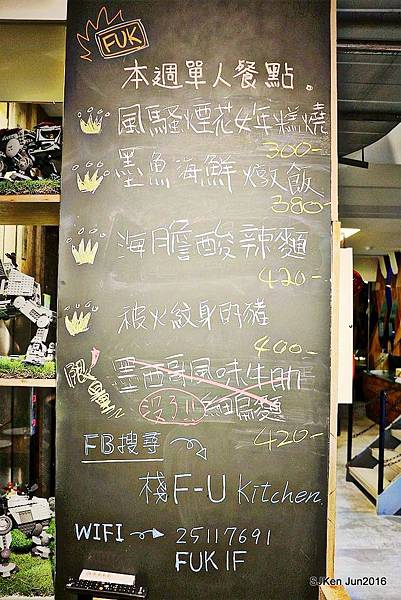 FUK
本週單人餐點。
風騷煙花女年糕燒
300-
墨魚海鮮燉飯
380-
海膽酸辣麵
420-
被火紋身的豬
400-
限量
墨西哥風味牛肋
沒了!! 細扁麵
420-
FB搜尋
棧F-U Kitchen
WIFI 25117691
FUK IF
SJKen Jun2016